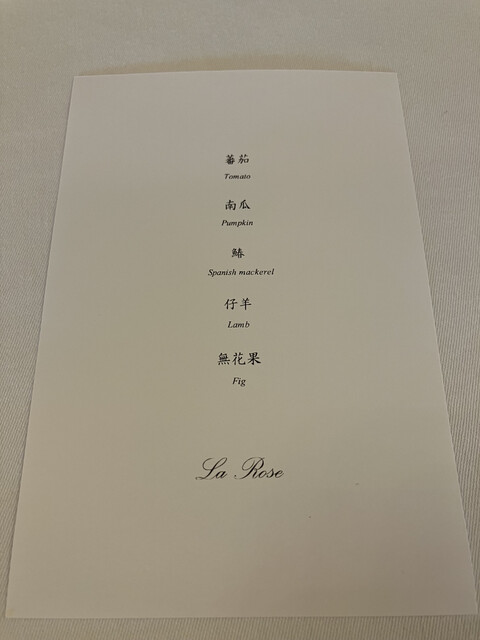 蕃茄
Tomato
南瓜
Pumpkin
鰆
Spanish mackerel
仔羊
Lamb
無花果
Fig
La Rose